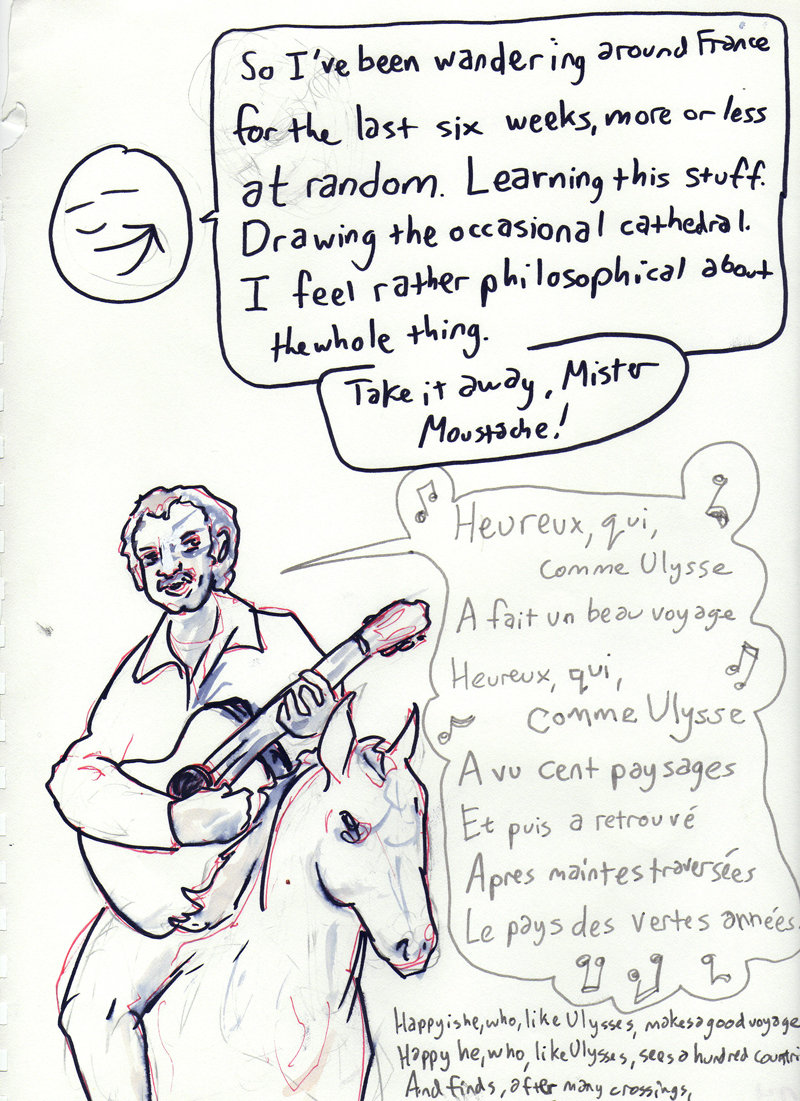 So I've been wandering around France
for the last six weeks, more or less
at random. Learning this stuff.
Drawing the occasional cathedral.
I feel rather philosophical about
the whole thing.
Take it away, Mister
Moustache!
Heureux, qui,
comme Ulysse
A fait un beau voyage
Heureux, qui,
comme Ulysse
A vu cent paysages
Et puis a retrouvé
Apres maintes traversées
Le pays des vertes années.
Happy is he, who, like Ulysses, makes a good voyage
Happy he, who, like Ulysses, sees a hundred countri
And finds, after many crossings,